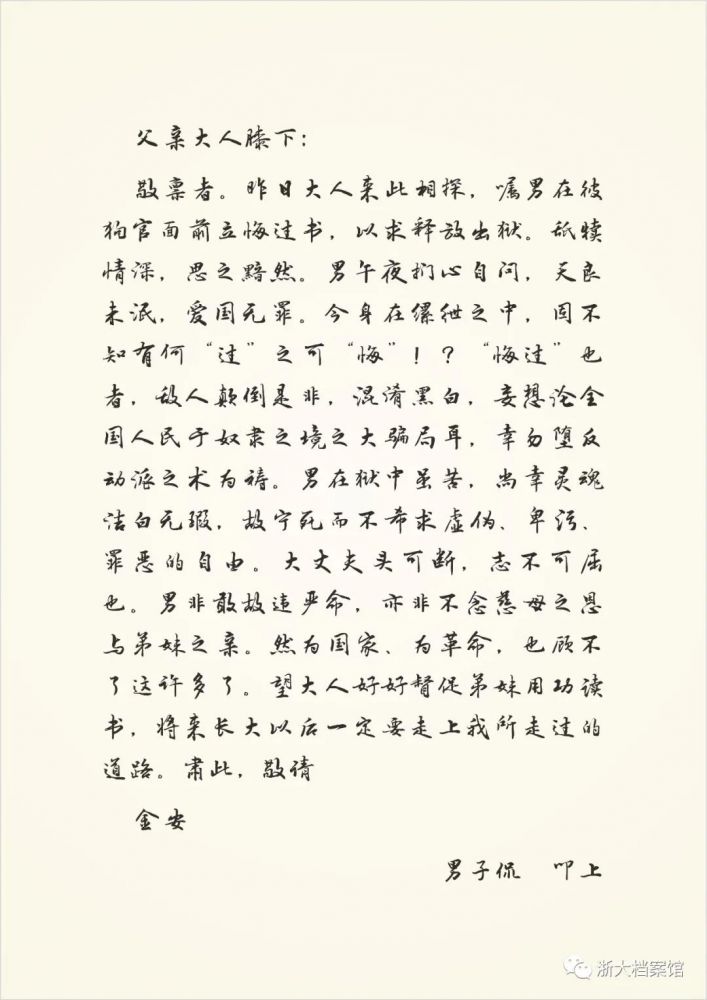 父亲大人膝下：
敬禀者。昨日大人来此相探，嘱男在彼
狗官面前立悔过书，以求释放出狱。舐犊
情深，思之黯然。男午夜扪心自问，天良
未泯，爱国无罪。今身在缧绁之中，固不
知有何“过”之可“悔”！？“悔过”也
者，敌人颠倒是非，混淆黑白，妄想论全
国人民于奴隶之境之大骗局耳，幸勿堕反
动派之术为祷。男在狱中虽苦，尚幸灵魂
洁白无瑕，故宁死而不希求虚伪、卑污、
罪恶的自由。大丈夫头可断，志不可屈
也。男非敢故违严命，亦非不念慈母之恩
与弟妹之亲。然为国家、为革命，也顾不
了这许多了。望大人好好督促弟妹用功读
书，将来长大以后一定要走上我所走过的
道路。肃此，敬倩
金安
男子侃 叩上
浙大档案馆